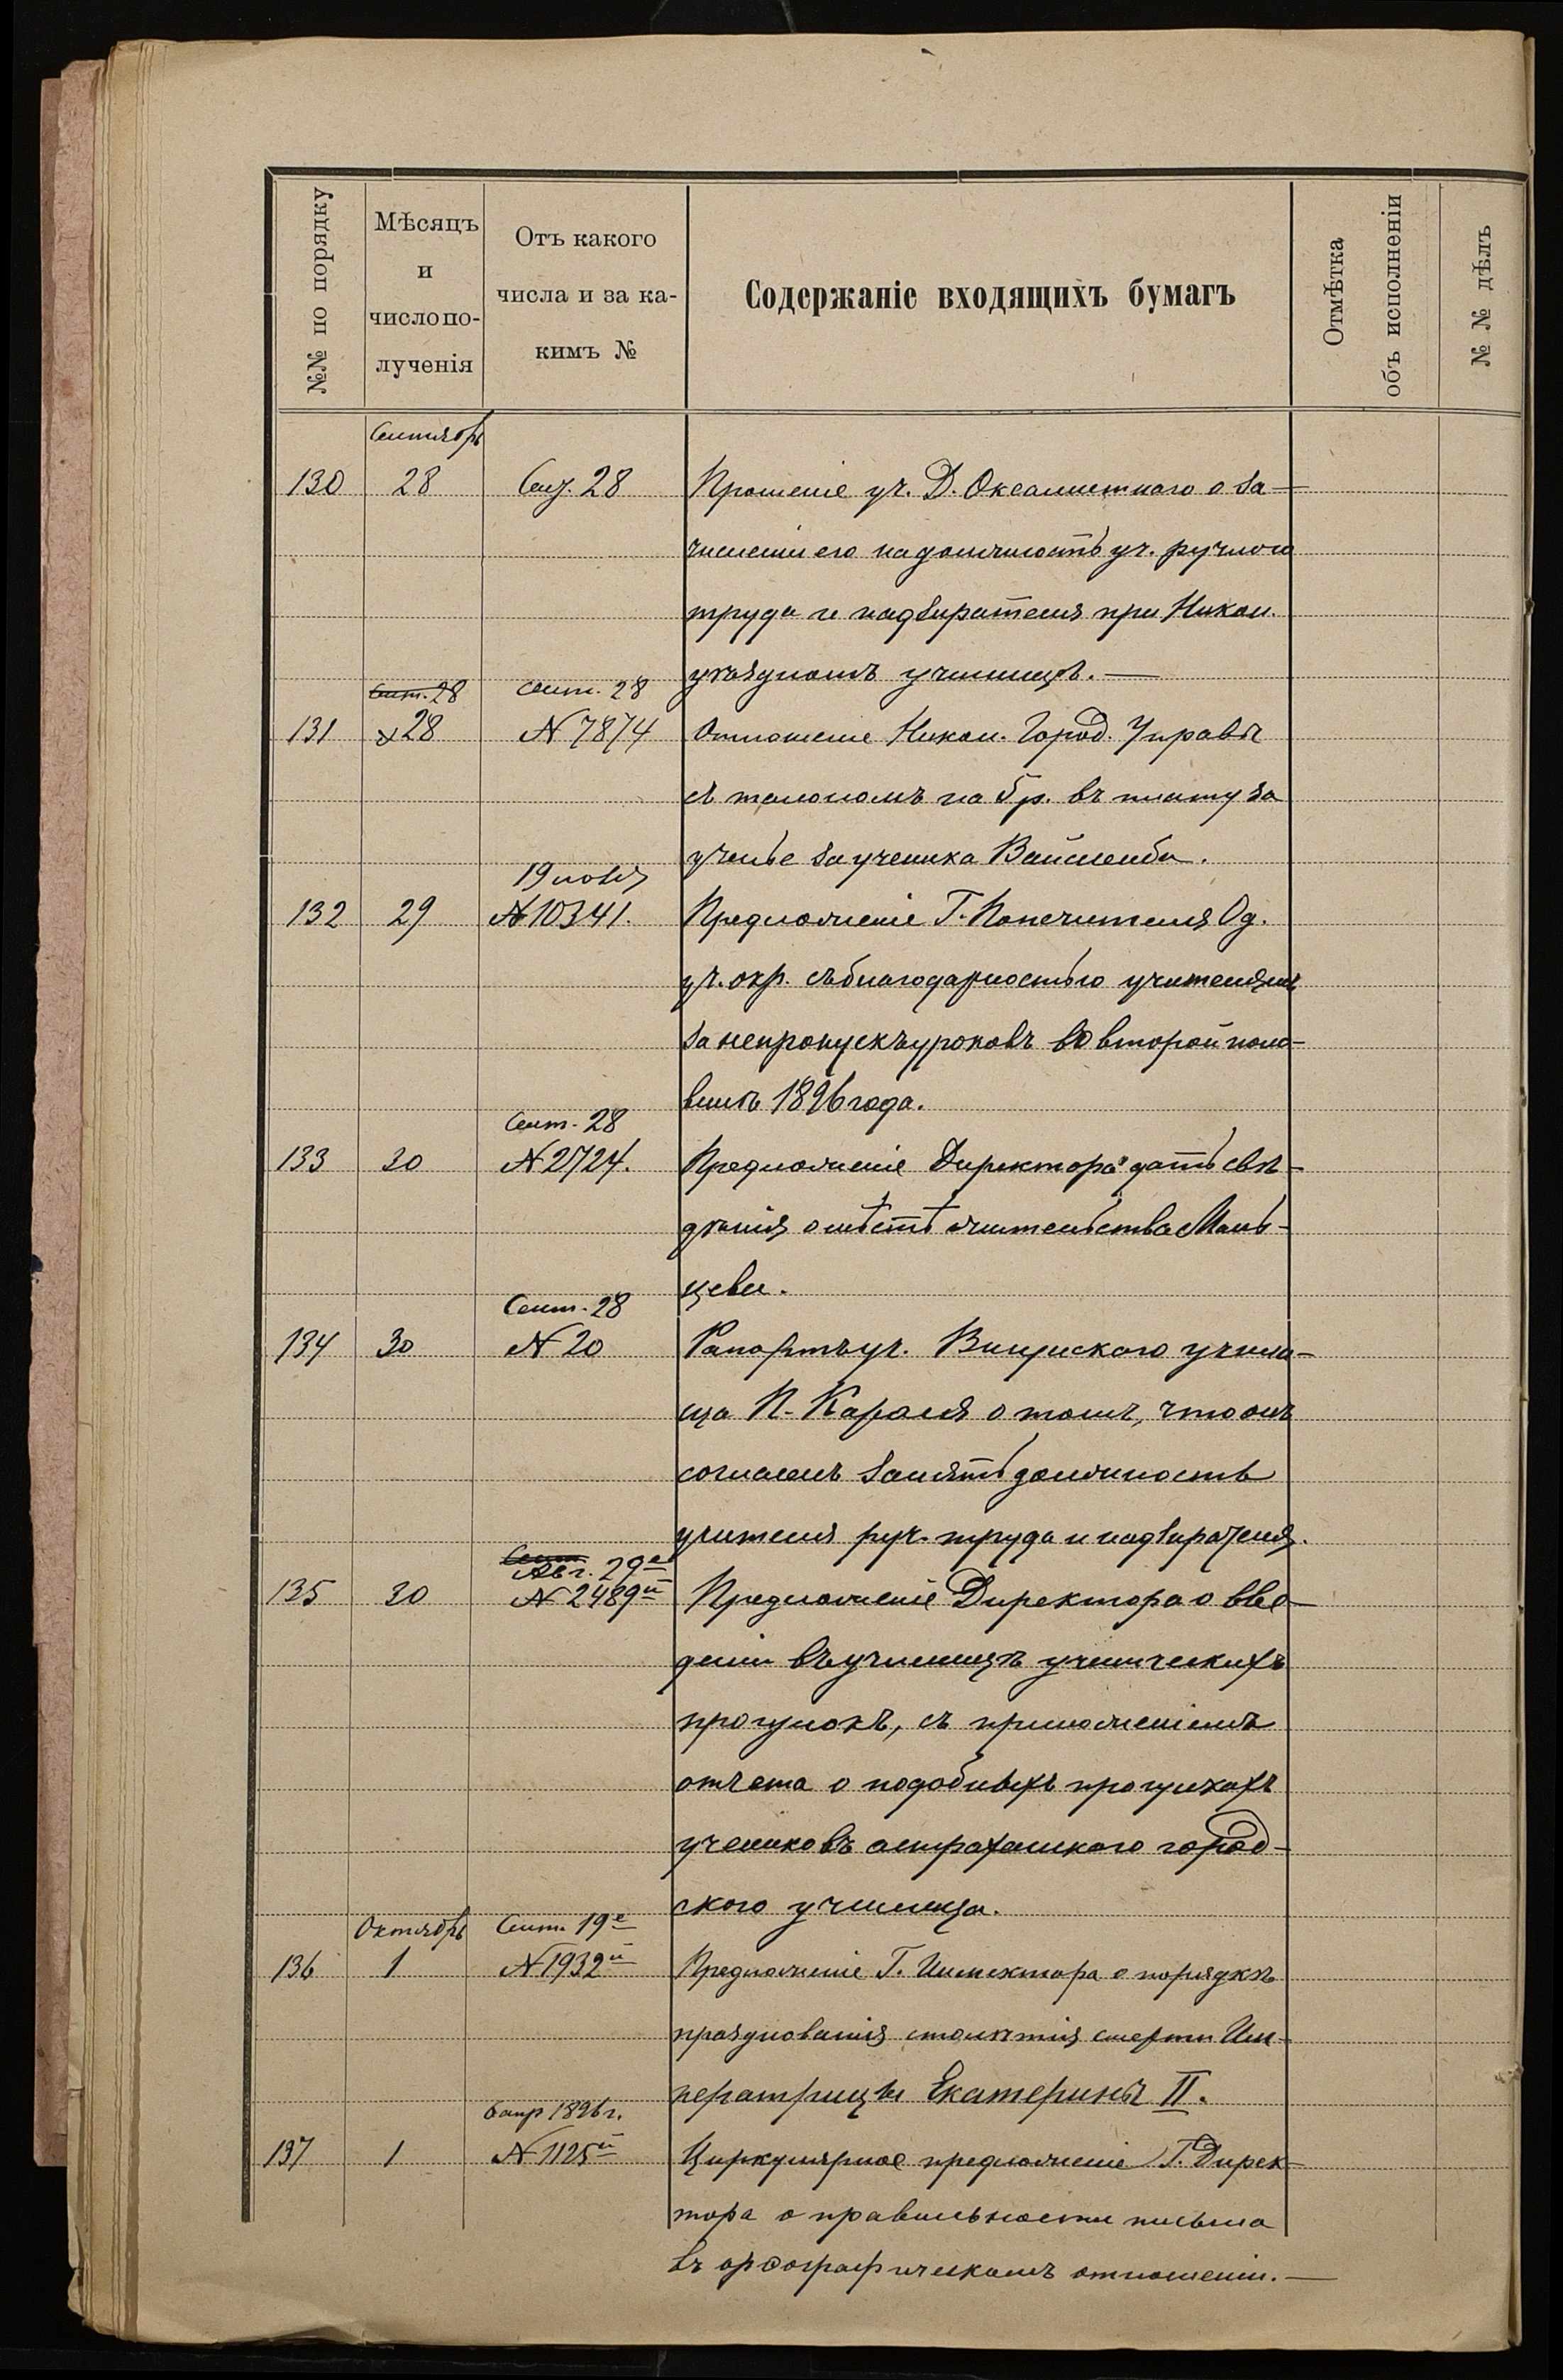 №№ по порядку
Мѣсяцъ
и
число по-
лученія
Отъ какого
числа и за ка-
кимъ №
Содержаніе входящихъ бумагъ
Отмѣтка
объ исполненіи
№ № дѣлъ
Сентябрь
130 28 Сент. 28 Прошеніе уч. Д. Оксамитнаго о за-
численіи его на должность уч. ручного
труда и надзирателя при Никол.
уѣздномъ училищѣ. —
Сент. 28 Сент. 28
131 28 № 7874 Отношеніе Никол. Город. Управы
съ талономъ на 5 р. въ плату за
ученье за ученика
19 іюня
132 29 № 10341. Предложеніе Г. Попечителя Од.
уч. окр. съ благодарностью учителямъ
за непропускъ уроковъ во второй поло-
винѣ 1896 года.
Сент. 28
133 30 № 2724. Предложеніе Директора дать свѣ-
дѣнія о мѣстѣ жительства Маль-
цева.
Сент. 28
134 30 № 20 Рапортъ уч. училища
П. Кароля о томъ, что онъ
согласенъ занять должность
учителя руч. труда и надзирателя.
Сент
Авг. 29е
135 30 № 2489й Предложеніе Директора о вве-
деніи въ училищѣ ученическихъ
прогулокъ, съ приложеніемъ
отчета о подобныхъ прогулкахъ
учениковъ астраханскаго город-
ского училища.
Октябрь Сент. 19е
136 1 № 1932й Предложеніе Г. Инспектора о порядкѣ
празднованія столѣтія смерти Им-
ператрицы Екатерины II.
6 апр 1896 г.
137 1 № 1125й Циркулярное предложеніе Г. Дирек-
тора о правильности письма
въ орѳографическомъ отношеніи. —